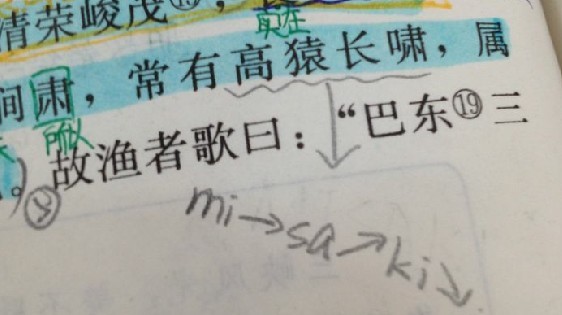 清荣峻茂⑱，
真在
间肃，常有高猿长啸，属
所以
故渔者歌曰：“巴东⑲三
mi→sa→ki